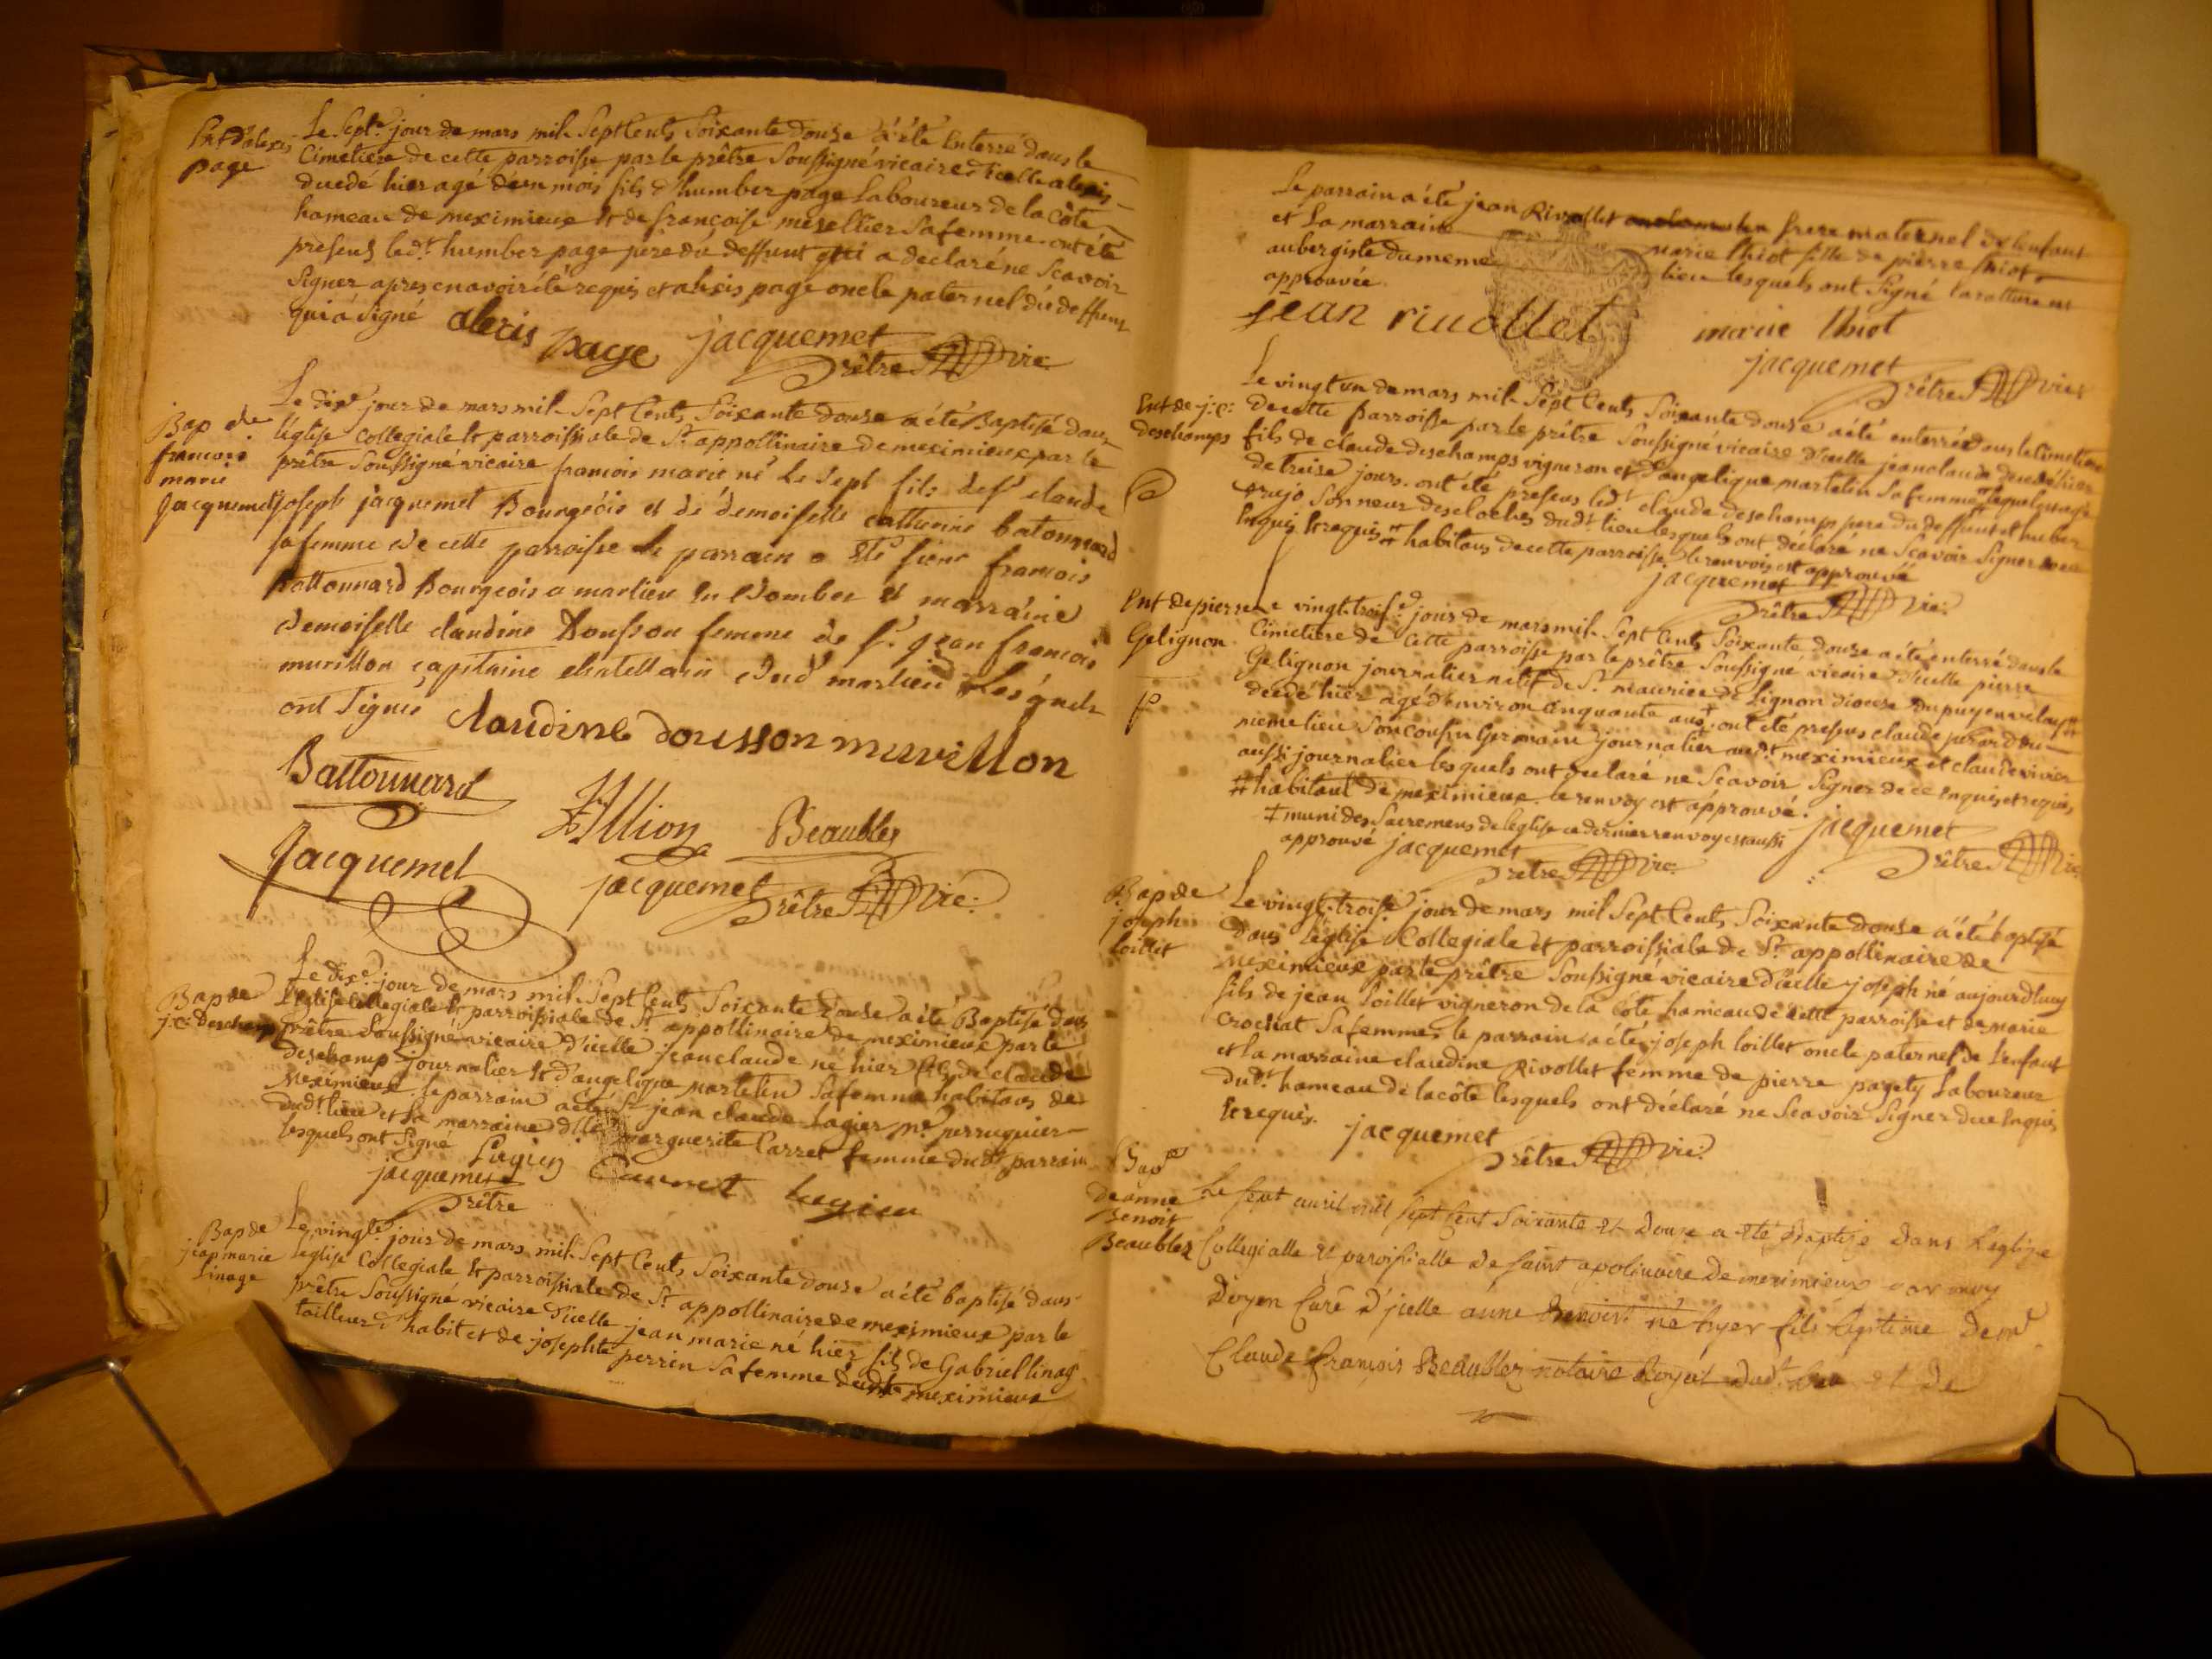 Ent d'alexis
page
Le sept.e jour de mars mil Sept Cents Soixante douse a été Enterré dans le
Cimetiere de cette parroisse par le prêtre Soussigné vicaire d'icelle alexis
décédé hier agé d'un mois fils d'humber page Laboureur de la côte
hameau de meximieux et de françoise mesellier Sa femme ont été
presens led.t humber page père du deffunt qui a déclaré ne Scavoir
Signer apres en avoir été requis et alexis page oncle paternel du deffunt
qui a signé
alexis page jacquemet
prêtre vic.
Bap de
francois
marie
Jacquemet
Le dix.e jour de mars mil Sept Cents Soixante douse a été Baptisé dans
l'église Collegiale et parroissiale de S.t appollinaire de meximieux par le
prêtre Soussigné vicaire francois marie né le Sept fils de S.r claude
joseph jacquemet Bourgeois et de démoiselle catherine batonnard
sa femme de cette parroisse le parrain a été sieur francois
battonnard Bourgeois a marlieu en Dombes et marraine
demoiselle claudine Dousson femme de S.r jean francois
muvillon capitaine chatellain dud marlieu Lesquels
ont Signés
claudine dousson muvillon
Battonnard
Jllion Beaublez
Jacquemet
jacquemet
prêtre vic.
Bap de
j: c: deschamp
Le dix.e jour de mars mil Sept Cents Soixante douse a été Baptisé dans
l'église Collegiale et parroissiale de S.t appollinaire de meximieux par le
prêtre Soussigné vicaire d'icelle jean claude né hier fils de claude
deschamp journalier et d'angelique martelin Sa femme habitans de
Meximieux. le parrain a été S.r jean claude Lagier m.e perruquier
dud.t lieu et la marraine d.lle marguerite Carret femme dud.t parrain
lesquels ont Signé
jacquemet
prêtre
Bap de
jean marie
linage
Le vingt.e jour de mars mil Sept Cents Soixante douse a été baptisé dans
l'église Collegiale et parroissiale de S.t appollinaire de meximieux par le
prêtre Soussigné vicaire d'icelle jean marie né hier fils de Gabriel linage
tailleur d'habit et de josephte perrin Sa femme dud.t meximieux
Le parrain a été jean Rivollet frere maternel de l'enfant
et la marraine marie thiot fille de pierre thiot
aubergiste du meme lieu lesquels ont signé la rature est
approuvée.
jean rivollet marie thiot
jacquemet
prêtre vic.
Ent de j: c:
deschamps
Le vingt un de mars mil Sept Cents Soixante douse a été enterré dans le Cimetiere
de cette parroisse par le prêtre Soussigné vicaire d'icelle jean claude décédé hier
fils de claude deschamps vigneron et d'angelique martelin Sa femme agé
de treise jours. ont été presens led.t claude deschamps pere du deffunt et huber
Sonneur des cloches dud.t lieu lesquels ont déclaré ne Scavoir Signer
Enquis et requis habitans de cette parroisse le renvois est approuvé
jacquemet
prêtre vic.
Ent de pierre
Gelignon
Le vingt trois.e jour de mars mil Sept Cents Soixante douse a été enterré dans le
Cimetiere de cette parroisse par le prêtre Soussigné vicaire d'icelle pierre
Gelignon journalier natif de S.t maurice de Lignon diocese du puy en velay #
décédé hier agé d'environ Cinquante ans ‡ ont été presens claude du
meme lieu Son cousin Germain journalier aud.t meximieux et claude vivier
aussi journalier lesquels ont declaré ne Scavoir Signer de ce Enquis et requis
# habitant de meximieux. le renvoy est approuvé. jacquemet
‡ muni des Sacremens de l'eglise ce dernier renvoy est aussi prêtre vic.
approuvé jacquemet
prêtre vic.
Bap de
joseph
loillet
Le vingt trois.e jour de mars mil Sept Cents Soixante douse a été baptisé
dans l'église Collegiale et parroissiale de S.t appollinaire de
Meximieux par le prêtre Soussigné vicaire d'icelle joseph né aujourdhuy
fils de jean loillet vigneron de la Côte hameau de cette parroisse et de marie
Crochat Sa femme. le parrain a été joseph loillet oncle paternel de l'enfant
et la marraine claudine Rivollet femme de pierre pagety Laboureur
dud.t hameau de la côte lesquels ont déclaré ne Scavoir Signer de ce Enquis
et requis.
jacquemet
prêtre vic.
Bap
de anne
Benoit
Beaublez
Le sept avril mil sept Cent Soixante et Douze a été Baptisé dans Leglize
Collegialle et paroissialle de saint apolinaire de meximieux par moy
Doyen Curé d'jcelle anne Benoit né hyer fils legitime de m.r
Claude françois Beaublez notaire Royal dud.t lieu et de